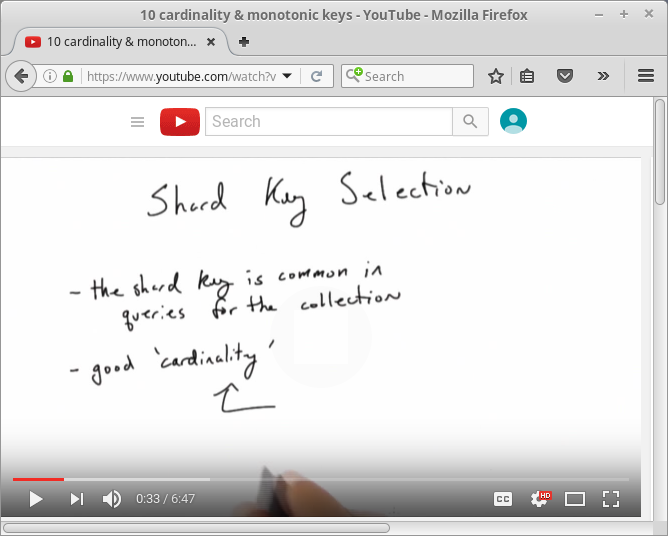 10 cardinality & monotonic keys - YouTube - Mozilla Firefox
10 cardinality & monoton...
https://www.youtube.com/watch?v
Search
Search
Shard Key Selection
- the shard key is common in
queries for the collection
- good 'cardinality'
0:33 / 6:47
CC
HD